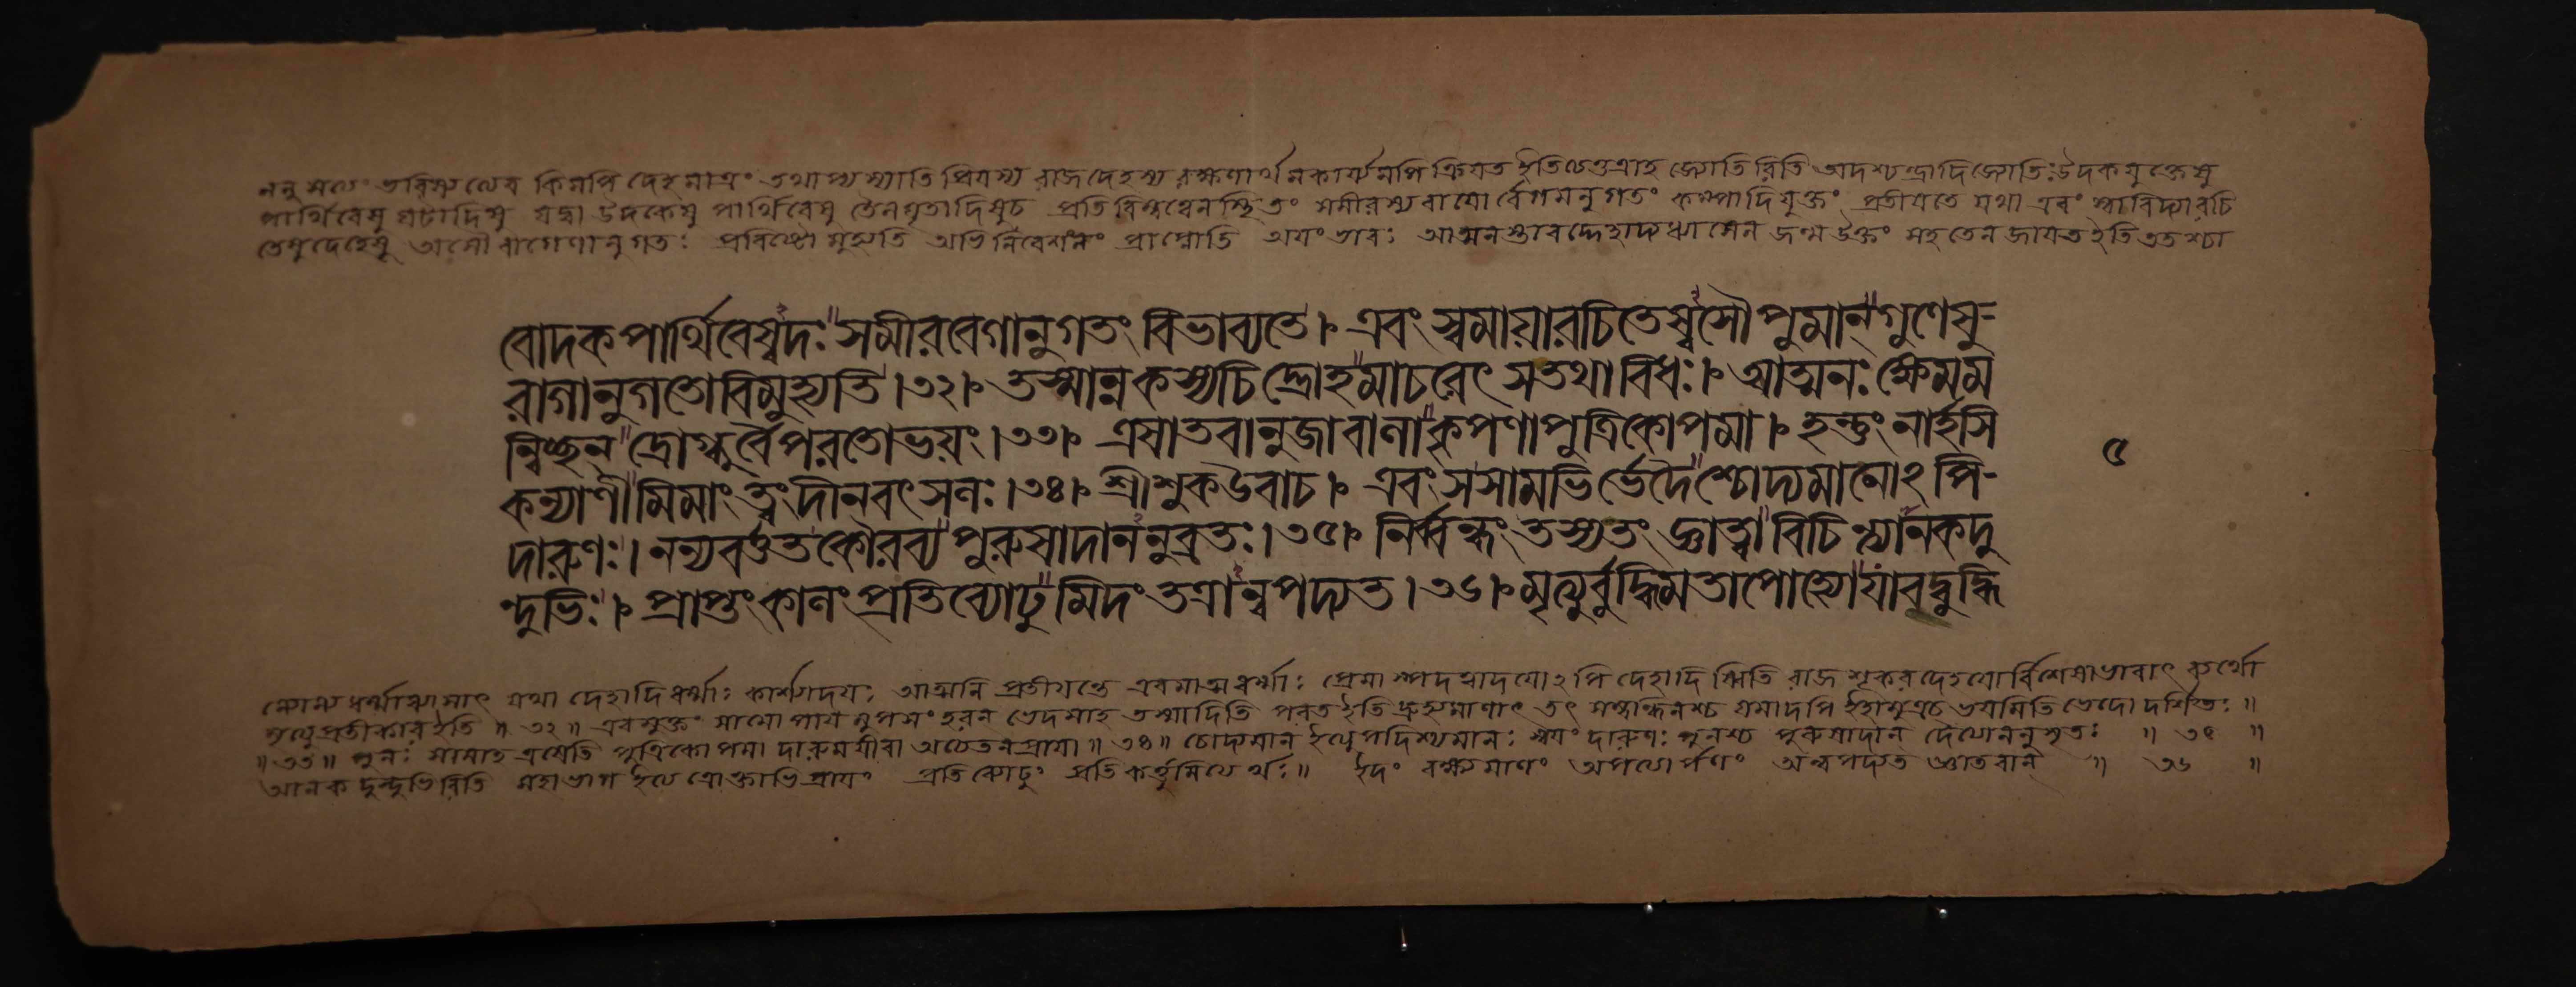 ননু সত্যং ভবিষ্যত্যেব কিমপি দেহমাত্রং তথাপ্যস্যাতিপ্রিয়স্য রাজদেহস্য রক্ষণার্থমকার্য্যমপি ক্রিয়ত ইতিচেত্তত্রাহ জ্যোতিরিতি অদশ্চন্দ্রাদিজ্যোতিঃ উদকযুক্তেষু
পার্থিবেষু ঘটাদিষু যদ্বা উদকেষু পার্থিবেষু তৈলঘৃতাদিষুচ প্রতিবিম্বত্বেনস্থিতং সমীরস্য বায়োর্বেগমনুগতং কম্পাদিযুক্তং প্রতীয়তে যথা এবং স্বাবিদ্যারচি
তেষুদেহেষু অসৌ রাগেণানুগতঃ প্রবিষ্টো মুহ্যতি অভিনিবেশনং প্রাপ্নোতি অয়ংভাবঃ আত্মনস্তাবদ্দেহাদ্যধ্যাসেন জন্ম উক্তং সহ তেন জায়ত ইতি ততশ্চা
বোদকপার্থিবেষ্বদঃ সমীরবেগানুগতং বিভাব্যতে। এবং স্বমায়ারচিতেষ্বসৌ পুমান্ গুণেষু-
রাগানুগতো বিমুহ্যতি।৩২। তস্মান্নকস্যচিদ্দ্রোহমাচরেৎ সতথাবিধঃ। আত্মনঃ ক্ষেমম
ন্বিচ্ছন্ দ্রোগ্ধুর্বৈপরতোভয়ং।৩৩। এষাতবানুজাবালা কৃপণাপুত্রিকোপমা। হন্তুং নার্হসি
কল্যাণীমিমাং ত্বং দীনবৎসলঃ।৩৪। শ্রীশুকউবাচ। এবং সসামভির্ভেদৈশ্চোদ্যমানোঽপি-
দারুণঃ। নন্যবর্ত্ততকৌরব্য পুরুষাদাননুব্রতঃ।৩৫। নির্ব্বন্ধং তস্যতং জ্ঞাত্বা বিচিন্ত্যানকদু
ন্দুভিঃ। প্রাপ্তং কালং প্রতিব্যোঢ়ুমিদং তত্রান্বপদ্যত।৩৬। মৃত্যুর্বুদ্ধিমতাপোহ্যোযাবদ্বুদ্ধি
৫
ন্যোন্যধর্ম্মাধ্যাসাৎ যথা দেহাদিধর্ম্মাঃ কার্শ্যাদয়ঃ আত্মনি প্রতীয়ন্তে এবমাত্মধর্ম্মাঃ প্রেমাস্পদত্বাদয়োঽপি দেহাদিষ্বিতি রাজশূকরদেহয়োর্বিশেষাভাবাৎ ব্যর্থো
মৃত্যুপ্রতীকার ইতি ॥ ৩২ ॥ এবমুক্তং সামোপায়মুপসংহরন্ ভেদমাহ তস্মাদিতি পরত ইতি দ্রুহ্যমাণাৎ তৎ সম্বন্ধিনশ্চ যমাদপি ইহামুত্রচ ভয়মিতি ভেদো দর্শিতঃ ॥
॥ ৩৩ ॥ পুনঃ সামাহ এষেতি পুত্রিকোপমা দারুময়ীবা অচেতনপ্রায়া ॥ ৩৪ ॥ চোদ্যমান ইত্যুপদিশ্যমানঃ স্বয়ং দারুণঃ পুনশ্চ পুরুষাদান্ দৈত্যাননুসৃতঃ ॥ ৩৫ ॥
আনকদুন্দুভিরিতি মহাভাগ ইত্যত্রোক্তাভিপ্রায়ং প্রতিব্যোঢ়ুং প্রতিকর্ত্তুমিত্যর্থঃ ॥ ইদং বক্ষ্যমাণং অপত্যার্পণং অন্বপদ্যত জ্ঞাতবান্ ॥ ৩৬ ॥